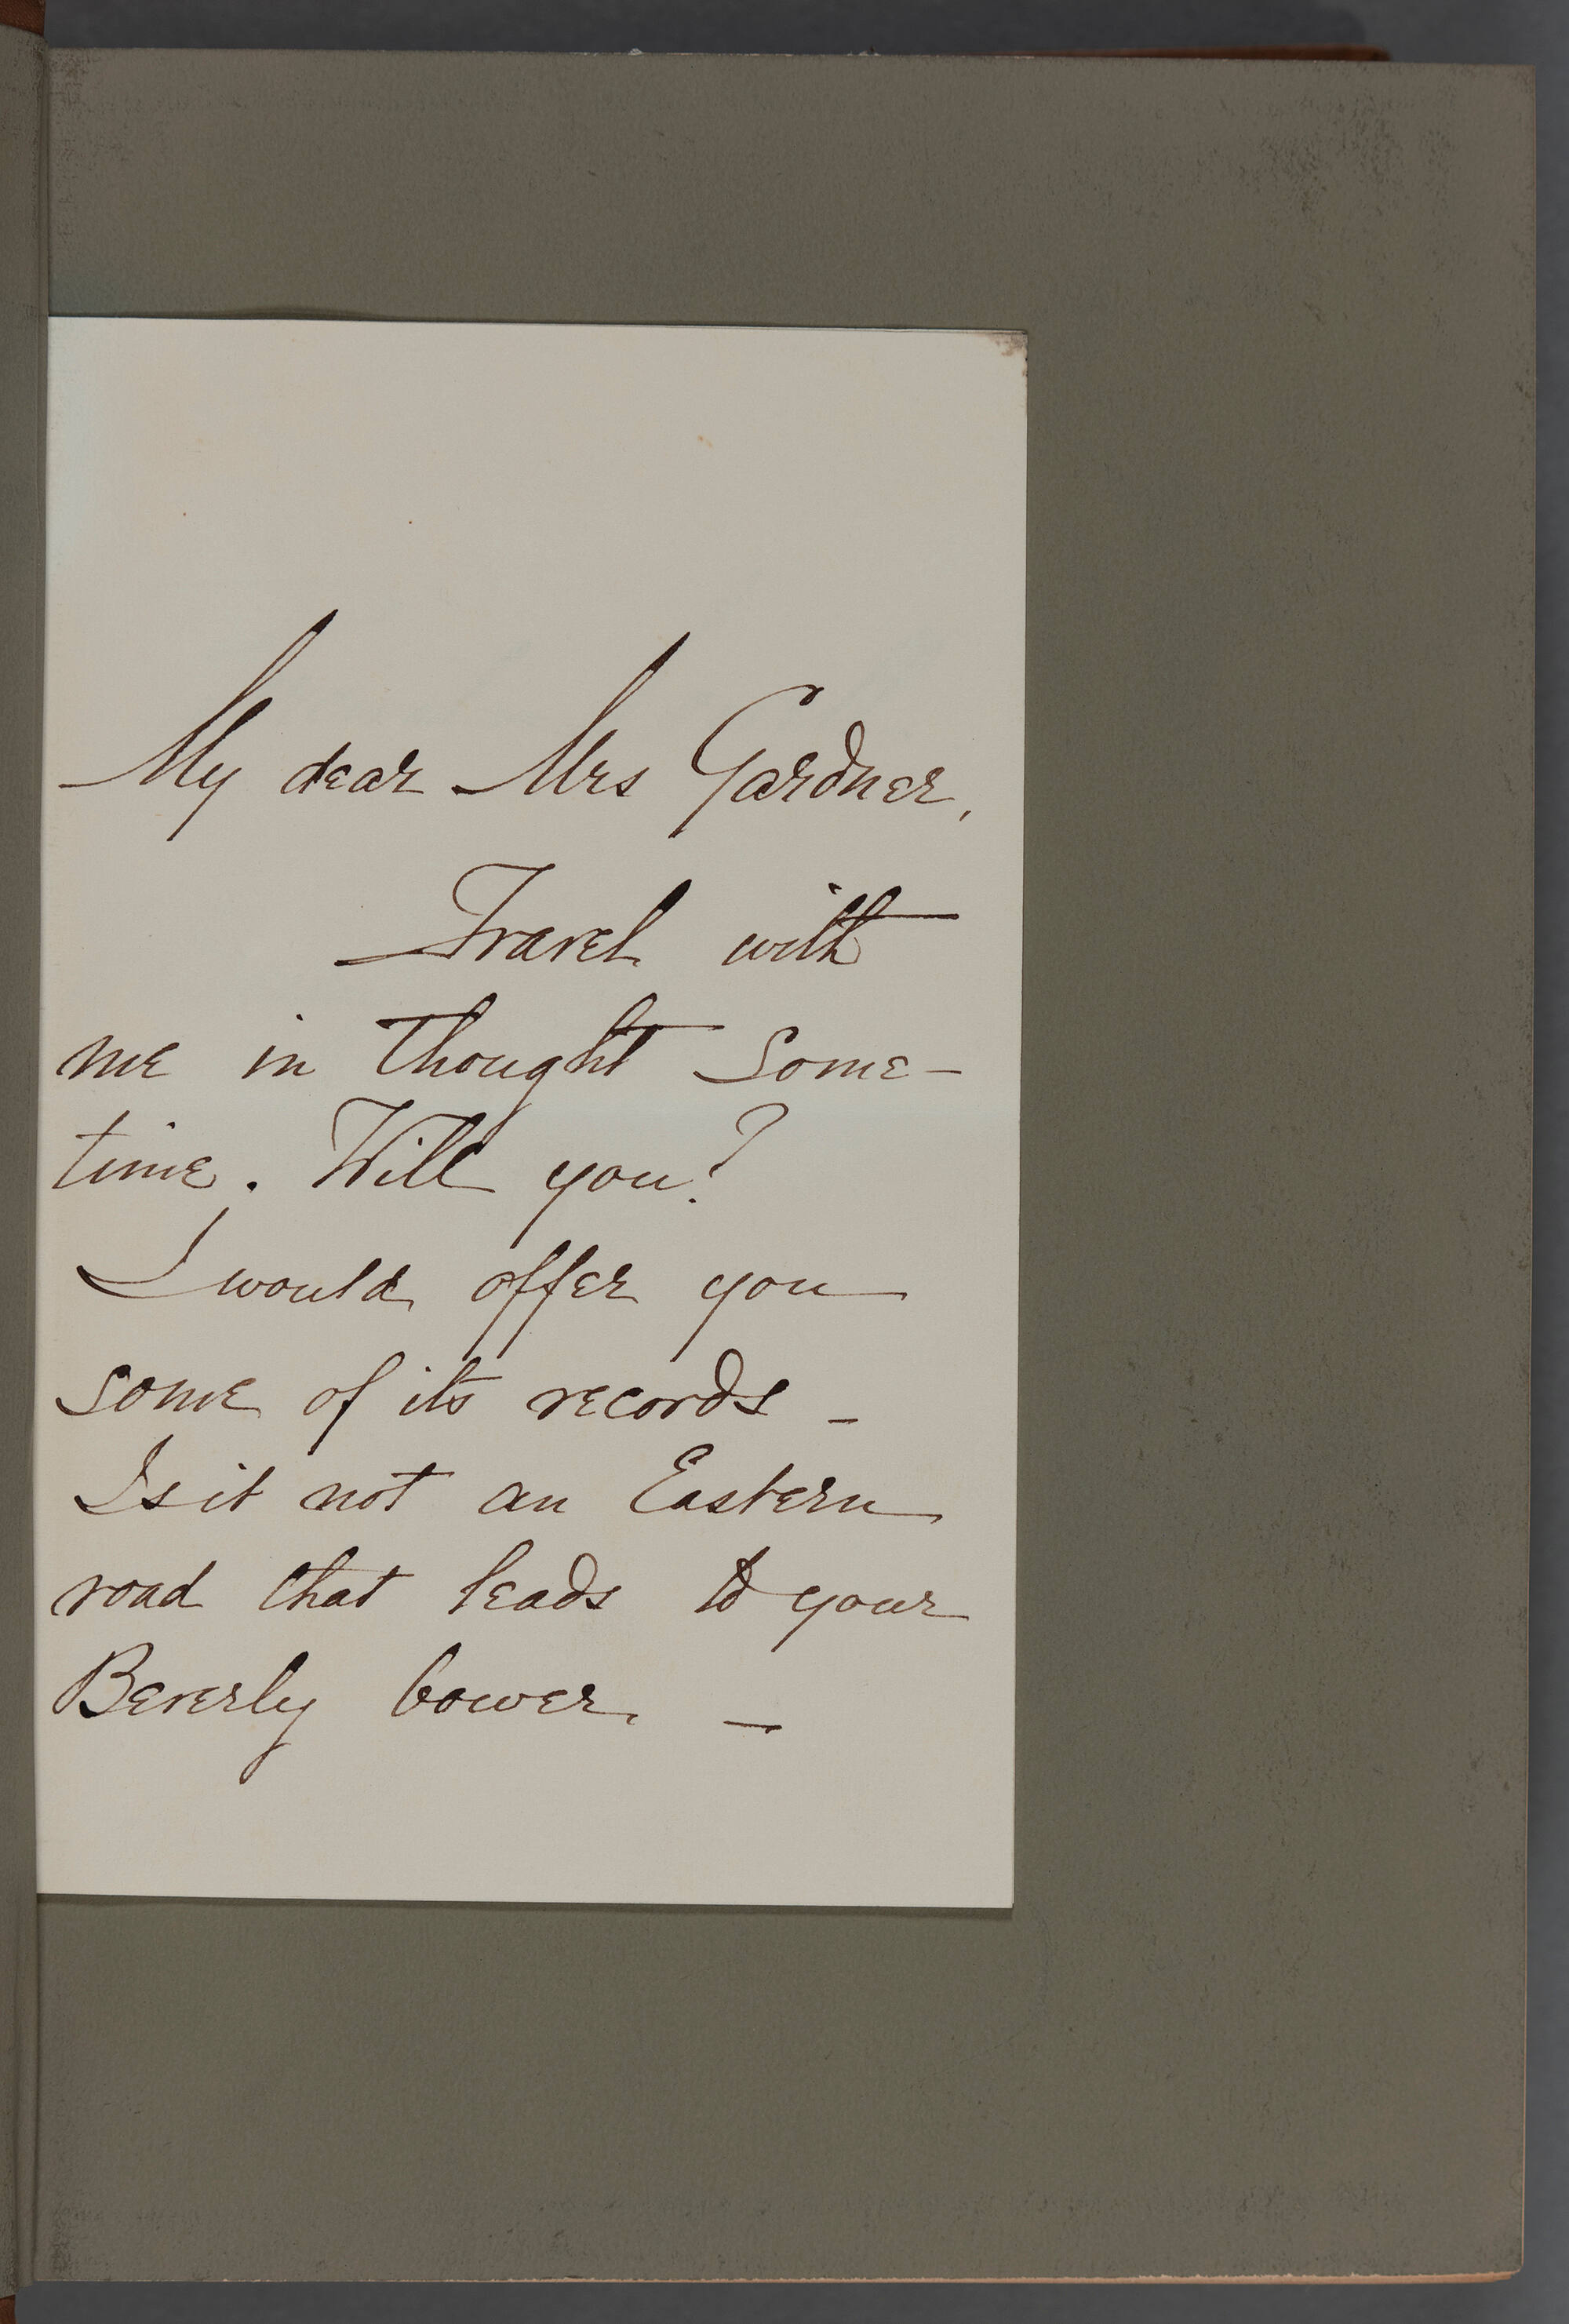 My dear Mrs Gardner,
Travel with
me in thought some-
time. Will you?
I would offer you
some of its records -
Is it not an Eastern
road that leads to your
Beverly bower -